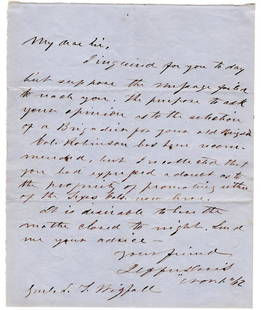 My dear Sir,
I inquired for you to day
but suppose the message failed
to reach you. The purpose to ask
your opinion as to the selection
of a Brigadier for your old Brigade
Col. Robinson has been recom-
mended, but I recollected that
you had expressed a doubt as to
the propriety of promoting either
of the Texas Cols. now here.
It is desirable to have the
matter closed to night. Send
me your advice -
Your friend
Jeffn Davis
Genl. L. T. Wigfall